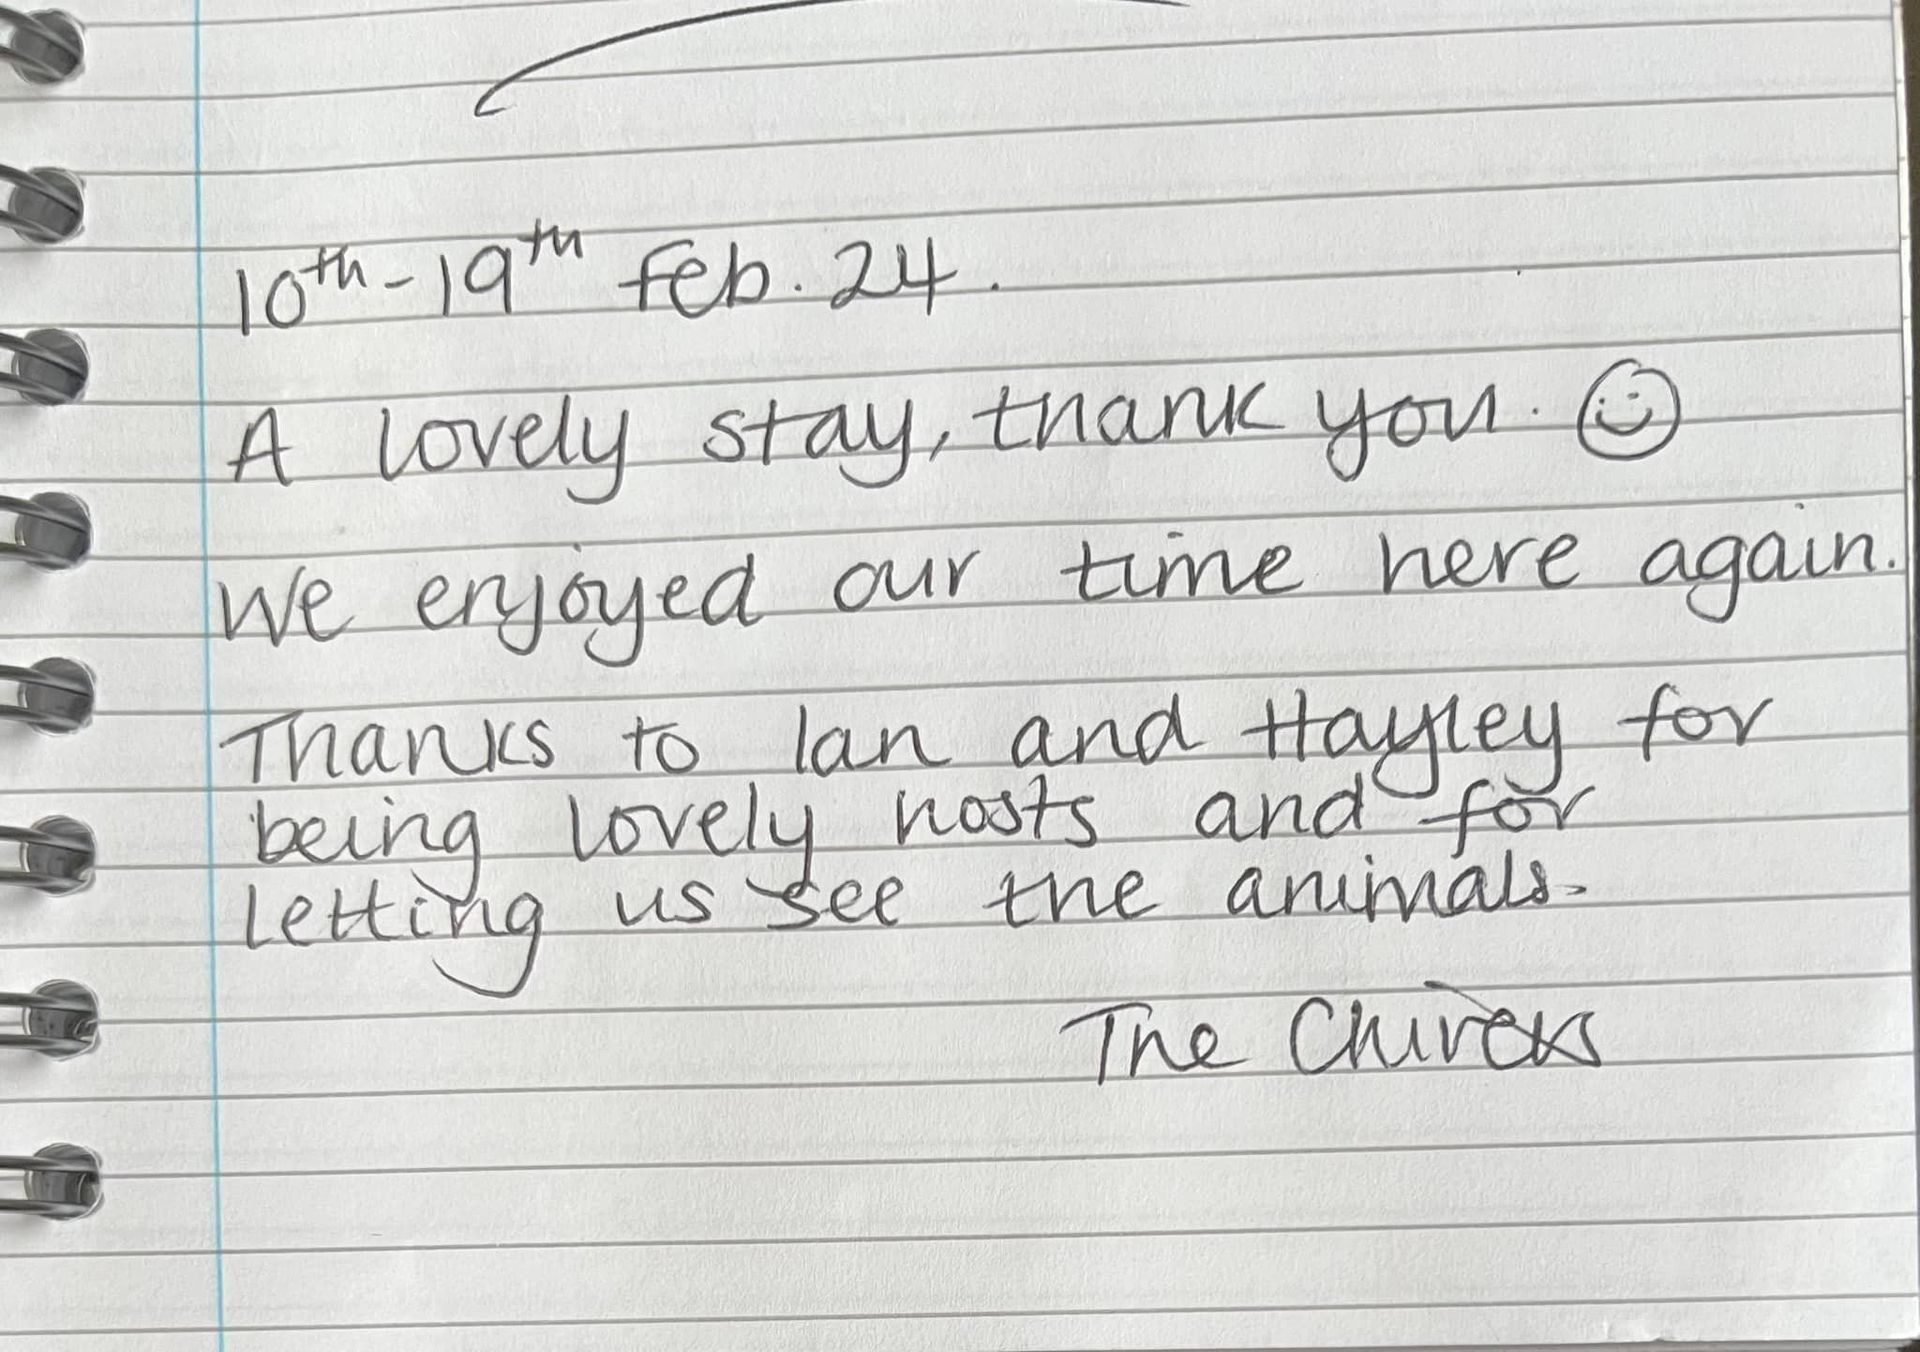 10th - 19th Feb. 24.
A lovely stay, thank you. ☺
We enjoyed our time here again.
Thanks to Ian and Hayley for
being lovely hosts and for
letting us see the animals.
The Chivers